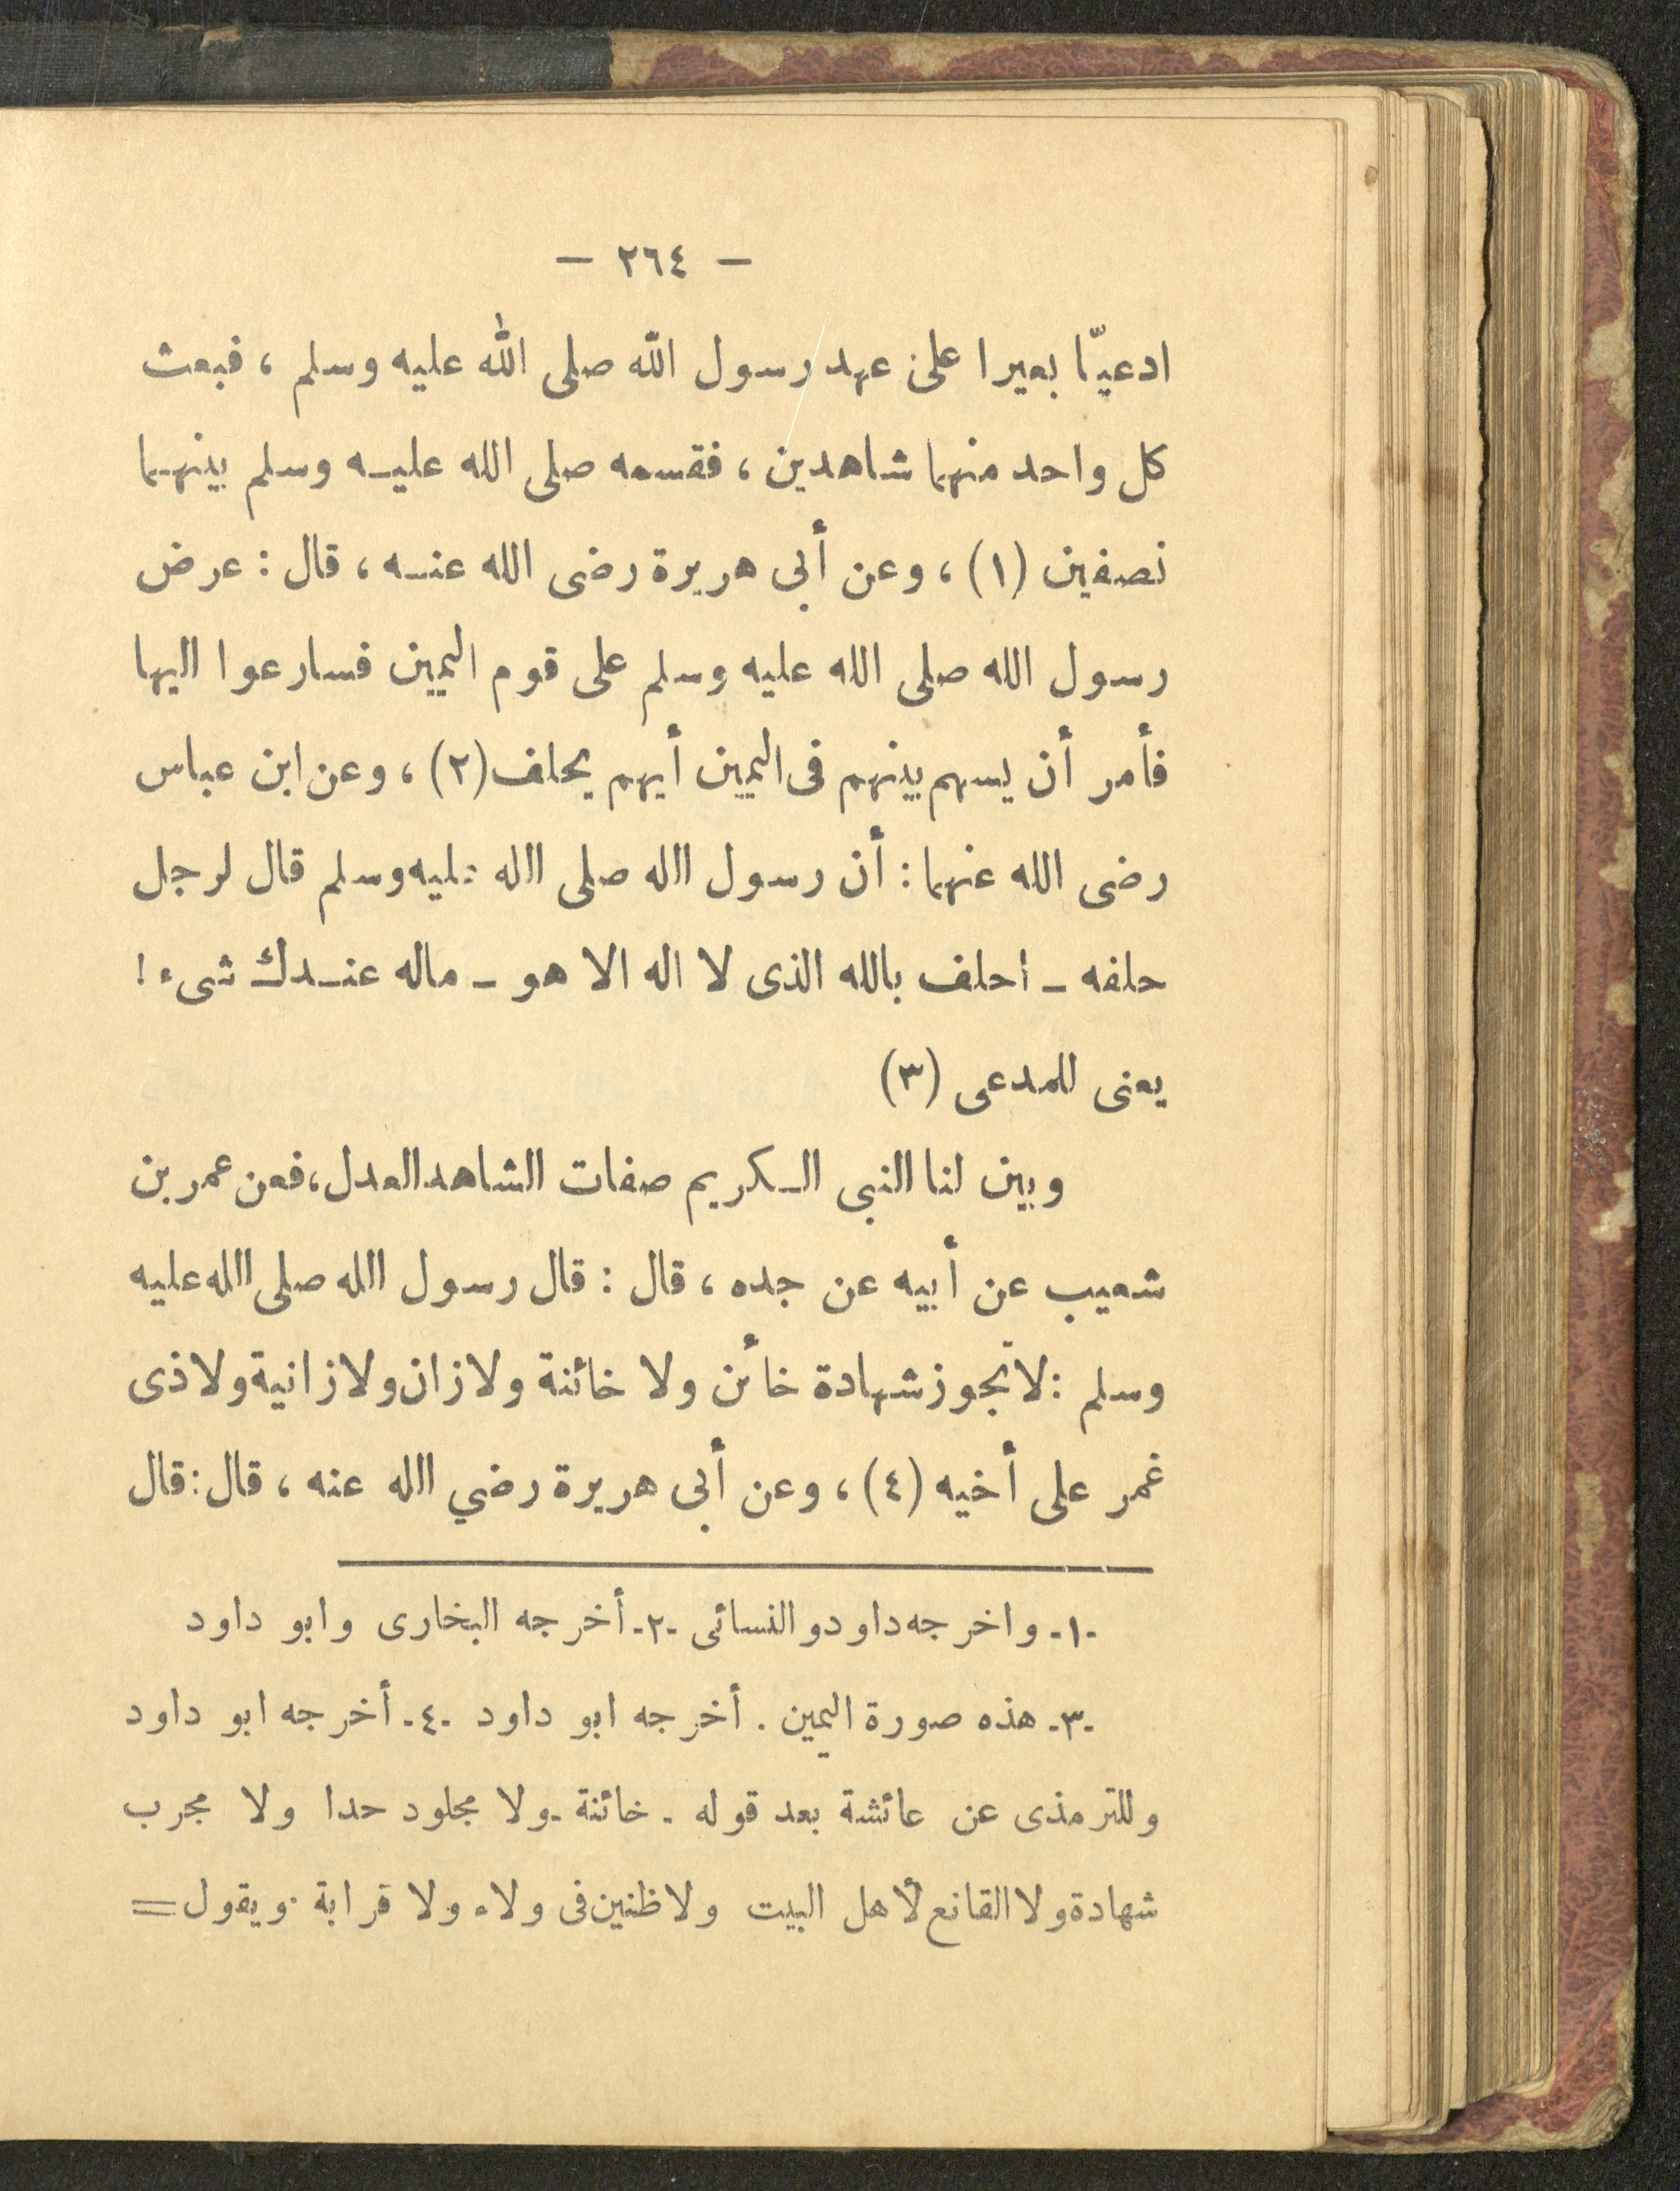 — ٢٦٤ —
ادعيّا بعيرا على عهد رسول الله صلى الله عليه وسلم ، فبعث
كل واحد منهما شاهدين ، فقسمه صلى الله عليه وسلم بينهما
نصفين (١) ، وعن أبى هريرة رضى الله عنه ، قال : عرض
رسول الله صلى الله عليه وسلم على قوم اليمين فسارعوا اليها
فأمر أن يسهم بينهم فى اليمين أيهم يحلف (٢) ، وعن ابن عباس
رضى الله عنهما : أن رسول الله صلى الله عليه وسلم قال لرجل
حلفه ــ احلف بالله الذى لا اله الا هو ــ ماله عندك شىء !
يعنى للمدعى (٣)
وبين لنا النبى الكريم صفات الشاهد العدل ، فعن عمر بن
شعيب عن أبيه عن جده ، قال : قال رسول الله صلى الله عليه
وسلم : لا تجوز شهادة خائن ولا خائنة ولا زان ولا زانية ولا ذى
غمر على أخيه (٤) ، وعن أبى هريرة رضي الله عنه ، قال : قال
-١- واخرجه داود والنسائى -٢- أخرجه البخارى وابو داود
-٣- هذه صورة اليمين . أخرجه ابو داود -٤- أخرجه ابو داود
وللترمذى عن عائشة بعد قوله - خائنة - ولا مجلود حدا ولا مجرب
شهادة ولا القانع لأهل البيت ولا ظنين فى ولاء ولا قرابة . ويقول =